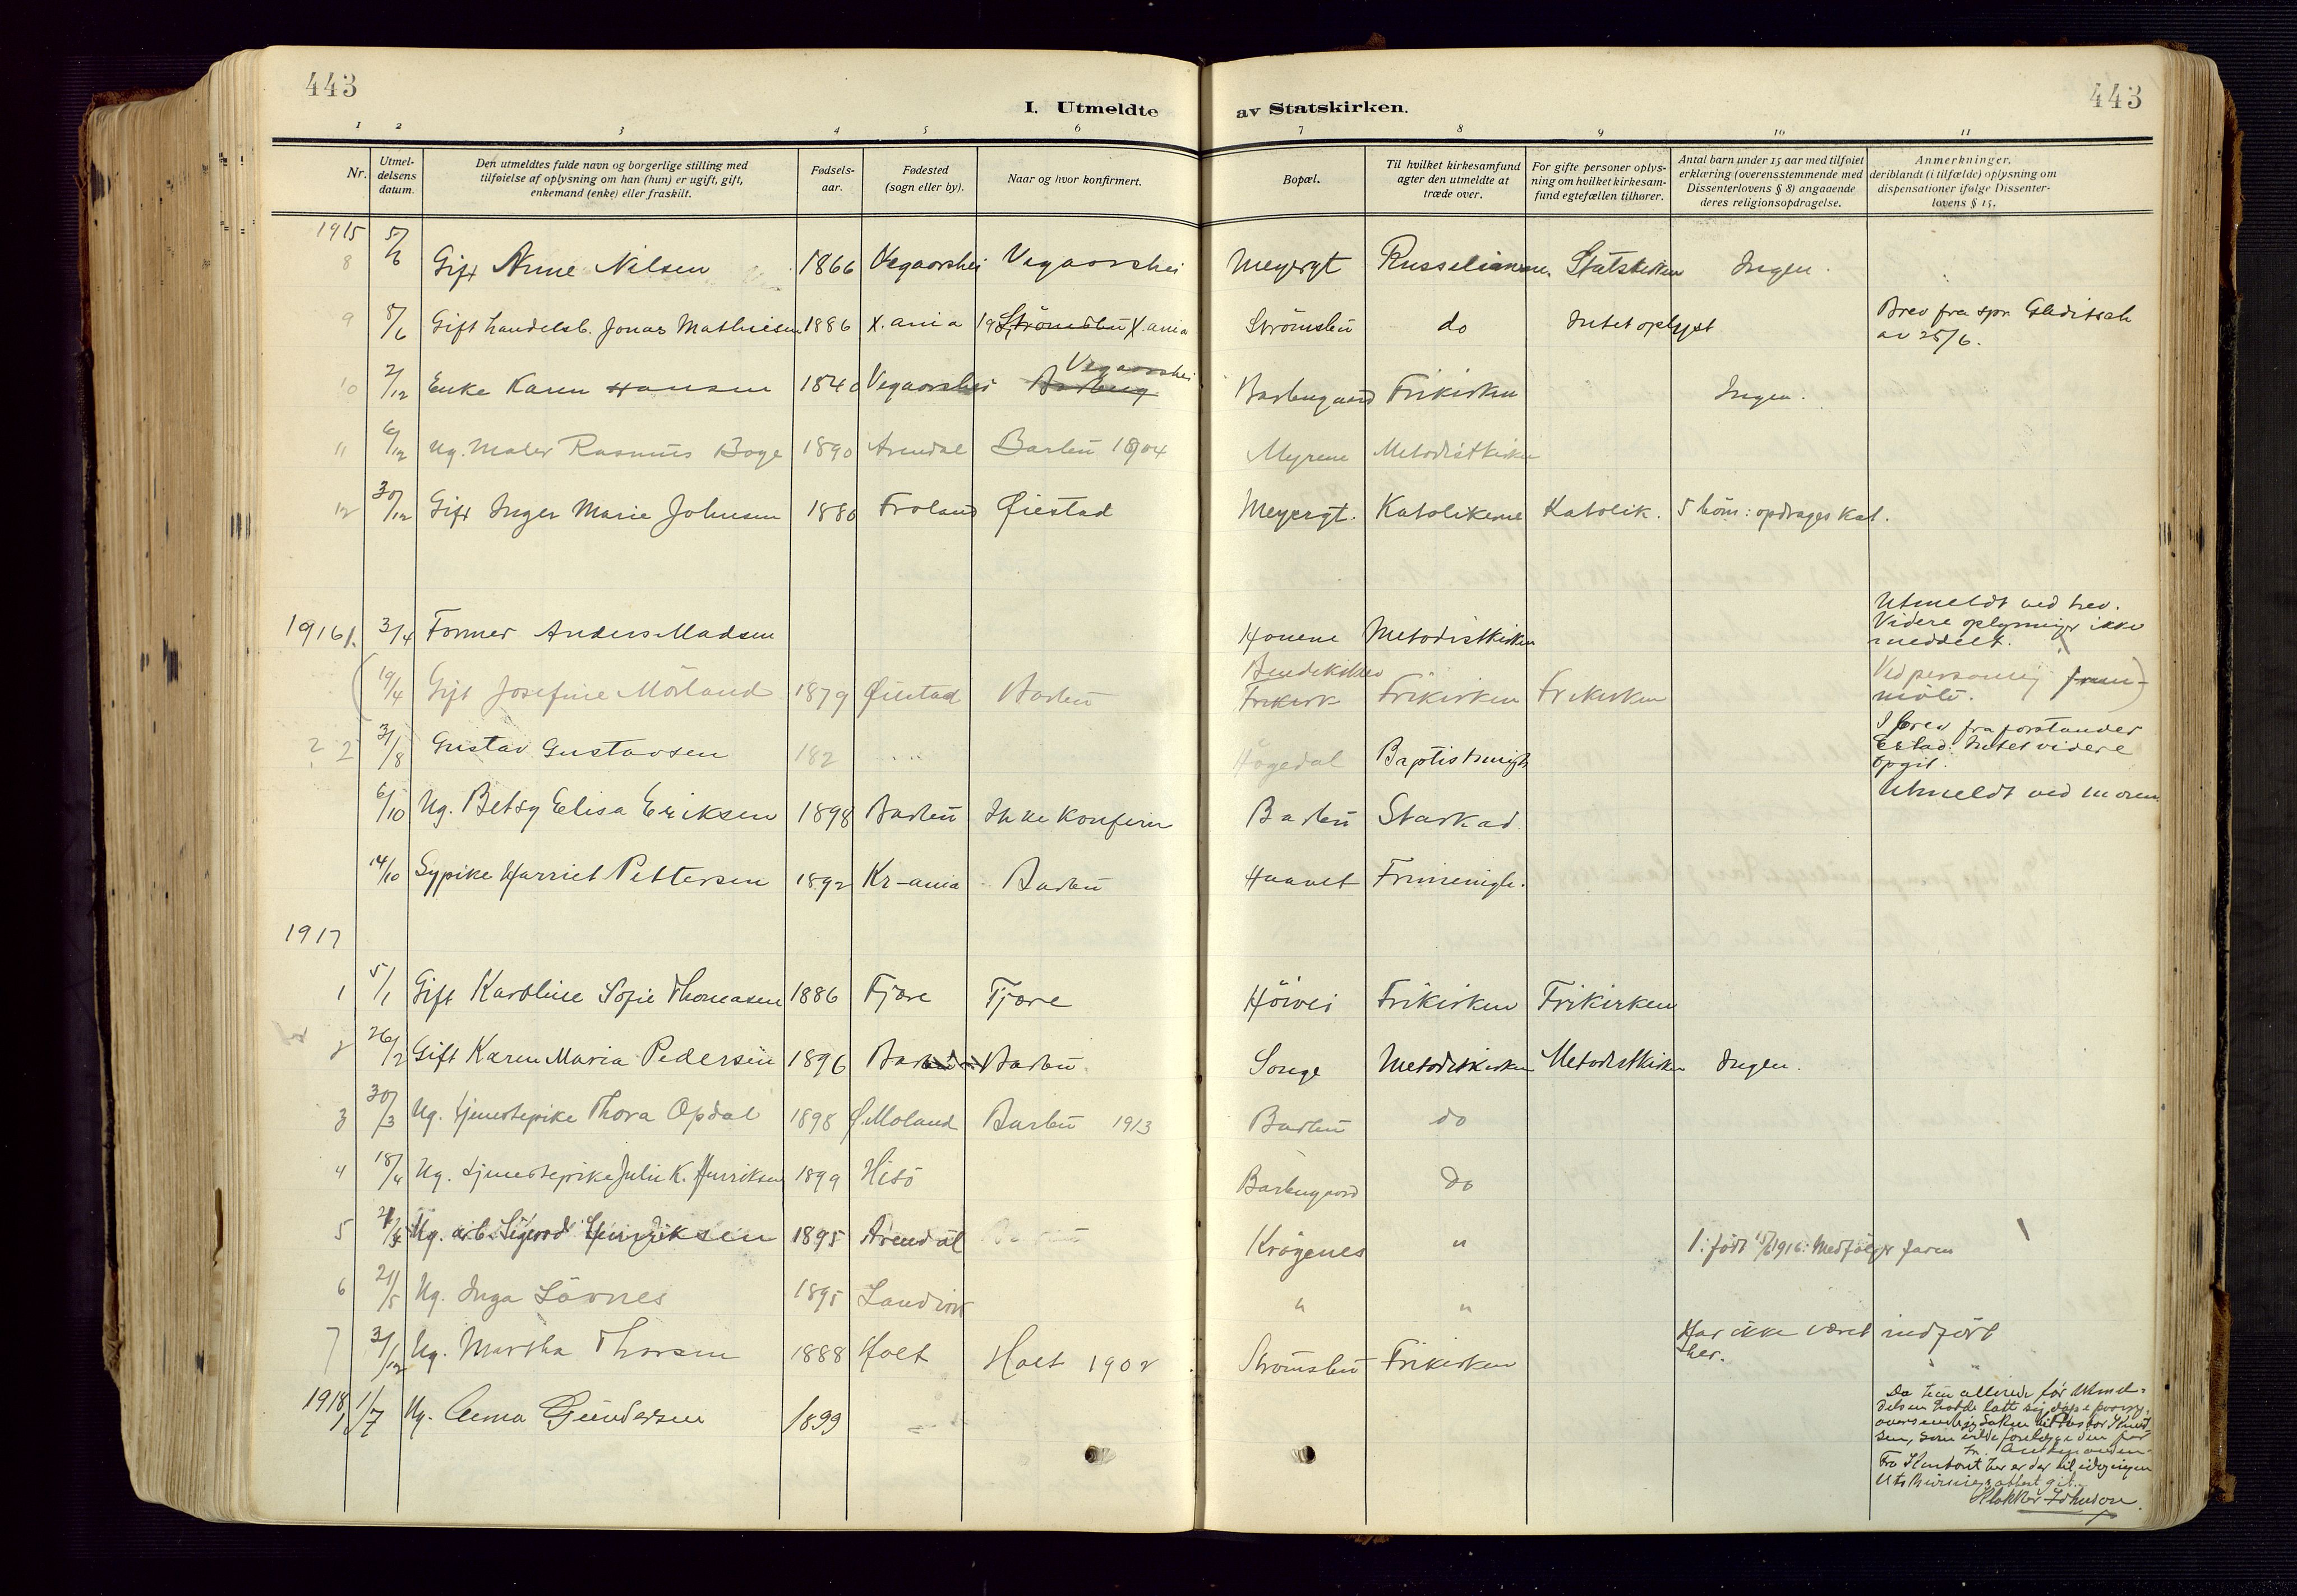 443
443
I. Utmeldte av Statskirken.
1 2 3 4 5 6 7 8 9 10 11
Nr.
Utmel-
delsens
datum.
Den utmeldtes fulde navn og borgerlige stilling med
tilføielse af oplysning om han (hun) er ugift, gift,
enkemand (enke) eller fraskilt.
Fødsels-
aar.
Fødested
(sogn eller by).
Naar og hvor konfirmert.
Bopæl.
Til hvilket kirkesamfund
agter den utmeldte at
træde over.
For gifte personer oplys-
ning om hvilket kirkesam-
fund egtefællen tilhører.
Antal barn under 15 aar med tilføiet
erklæring (overensstemmende med
Dissenterlovens § 8) angaaende
deres religionsopdragelse.
Anmerkninger,
deriblandt (i tilfælde) oplysning om
dispensationer ifølge Dissenter-
lovens § 15.
1915
8 5/6 Gift Anne Nilsen 1866 Vegaarshei Vegaarshei Meyergt Russelianerne. Statskirken Ingen.
9 8/6 Gift handelsb. Jonas Mathiesen 1886 X.ania Strömsbu X.ania Strömsbu do Intet oplyst Brev fra spr. Gleditsch
av 25/6.
10 2/12 Enke Karen Hansen 1840 Vegaarshei Barbu Vegaarshei Barbugaard Frikirken Ingen.
11 6/12 Ug. Maler Rasmus Boge 1890 Arendal Barbu 1904 Myrene Metodistkirken
12 30/12 Gift Inger Marie Johnsen 1880 Froland Øiestad Meyergt. Katolikerne Katolik. 5 börn: opdrages kat.
1916 1. 3/4 Former Anders Madsen Metodistkirken Utmeldt ved brev.
Videre oplysninger ikke
meddelt.
( 19/4 Gift Josefine Mörland 1879 Øiestad Barbu Frikirk Frikirken Frikirken Ved personlig frem-)
möte.
2 31/8 Gustav Gustavsen 182 Högedal Baptistmenigh I brev fra forstander
Intet videre
opgit.
6/10 Ug. Betsy Elisa Eriksen 1898 Barbu Ikke konfirm Barbu Starkad Utmeldt ved moren
14/10 Sypike Harriet Pettersen 1892 Kr-ania Barbu Haavet Frimenigh.
1917
1 5/1 Gift Karoline Sofie Thomasen 1886 Fjære Fjære Höivei Frikirken Frikirken
2 26/2 Gift Karen Maria Pedersen 1896 Barbu Barbu Songe Metodistkirken Metodistkirken Ingen.
3 30/3 Ug. tjenestepike Thora Opdal 1898 Ø.Moland Barbu 1913 Barbu do
4 18/4 Ug. tjenestepike Julie K. Henriksen 1899 Hisö Barbugaard do
5 Ug. arb. Sigurd Henriksen 1895 Arendal Krögenes " 1: född 1916: Medfølger faren
6 21/5 Ug. Inga Lövnes 1895 Landvik " "
7 31/12 Ug. Martha Thorsen 1888 Holt Holt 1902 Strömsbu Frikirken Har ikke været indfört
her.
1918
1 1/7 Ug. Anna Gundersen 1899
Da hun allerede för utmel-
delsen hadde latt sig döpe
Klokker Johnsen.